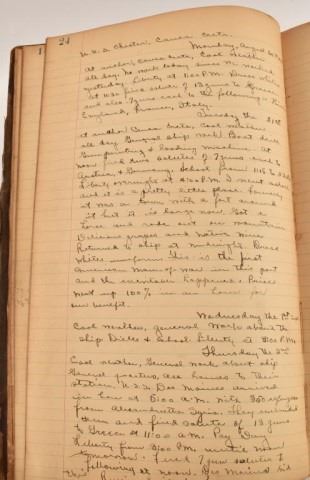 24
U.S.S. Chester, Canea Crete.
Monday, August 30
At anchor, Canea Crete, Cool weather
all day. No work today since we worked
yesterday. Liberty at 1:00 P.M. Dress white
At noon fired salute of 13 guns to Greece
and also 7 guns each to the following:
England, France, Italy.
Tuesday the 31st
At anchor Canea Crete, Cool weather
all day. General ship work. Boat drill
Gunpointing & loading machine. At
noon fired two salutes of 7 guns each to
Austria & Germany. School from 1:15 to
Liberty at 1:00 P.M. I went ashore
and it is a pretty little place. formerly
it was a town with a fort around
it but it is large now. Got a
horse and rode out on mountain
Delicious grapes and water.
Returned to ship at midnight. Dress
white uniform. This is the first
American Man-of-war in this port
and the merchants
went up 100% in an hour for
our benefit.
Wednesday the 1st
Cool weather, general work about the
ship Drills & School. Liberty at 1:00 P.M.
Thursday the 2nd
Cool weather, General work about ship
General quarters, all hands to their
station. U.S.S. Des Moines arrived
in here at 6:00 A.M. with 300 refugees
from Alexandretta Syria. They
them and fired salute of 13 guns
to Greece at 11:00 A.M. Pay Day
Liberty from 1:00 P.M. until noon
tomorrow. fired 7 gun salutes to
following at noon. Des Moines did